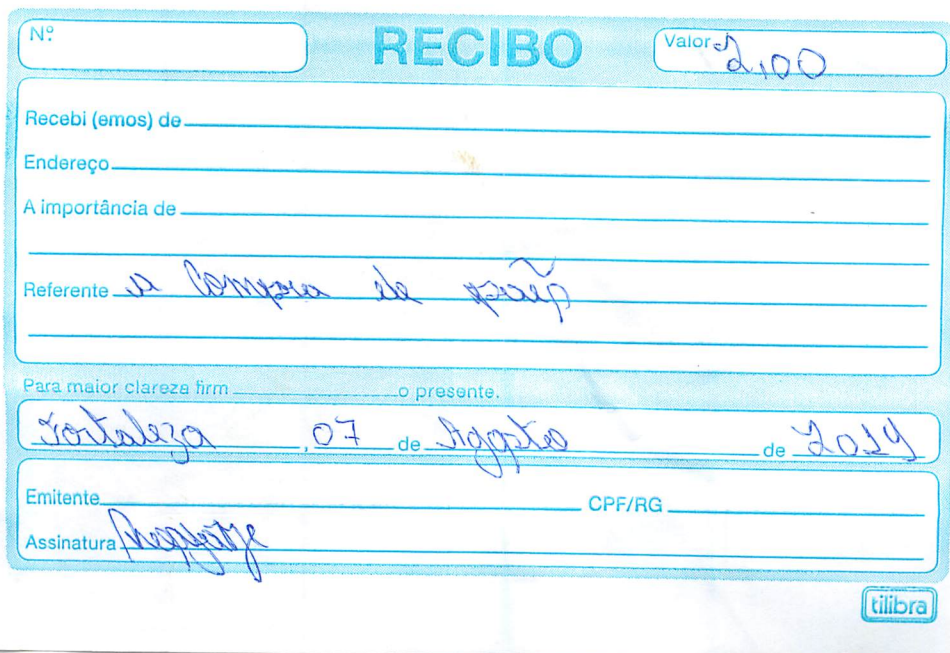 Nº
RECIBO
Valor 2,00
Recebi (emos) de
Endereço
A importância de
Referente a Compra de pão
Para maior clareza firm o presente.
Fortaleza , 07 de Agosto de 2019
Emitente CPF/RG
Assinatura
tilibra